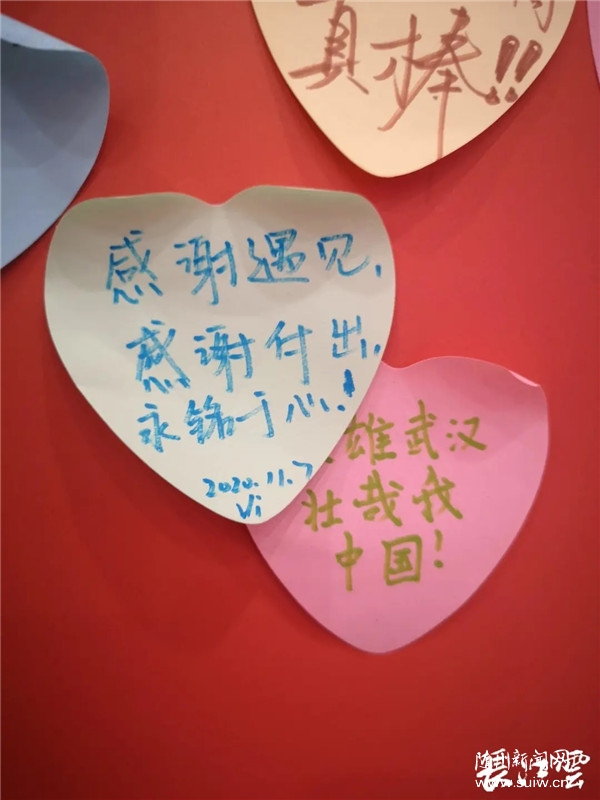 真棒!!
感谢遇见,
感谢付出,
永铭于心!
2020.11.7
Vi
雄武汉
壮哉我
中国!
随州新闻网
www.suiw.cn
长江云